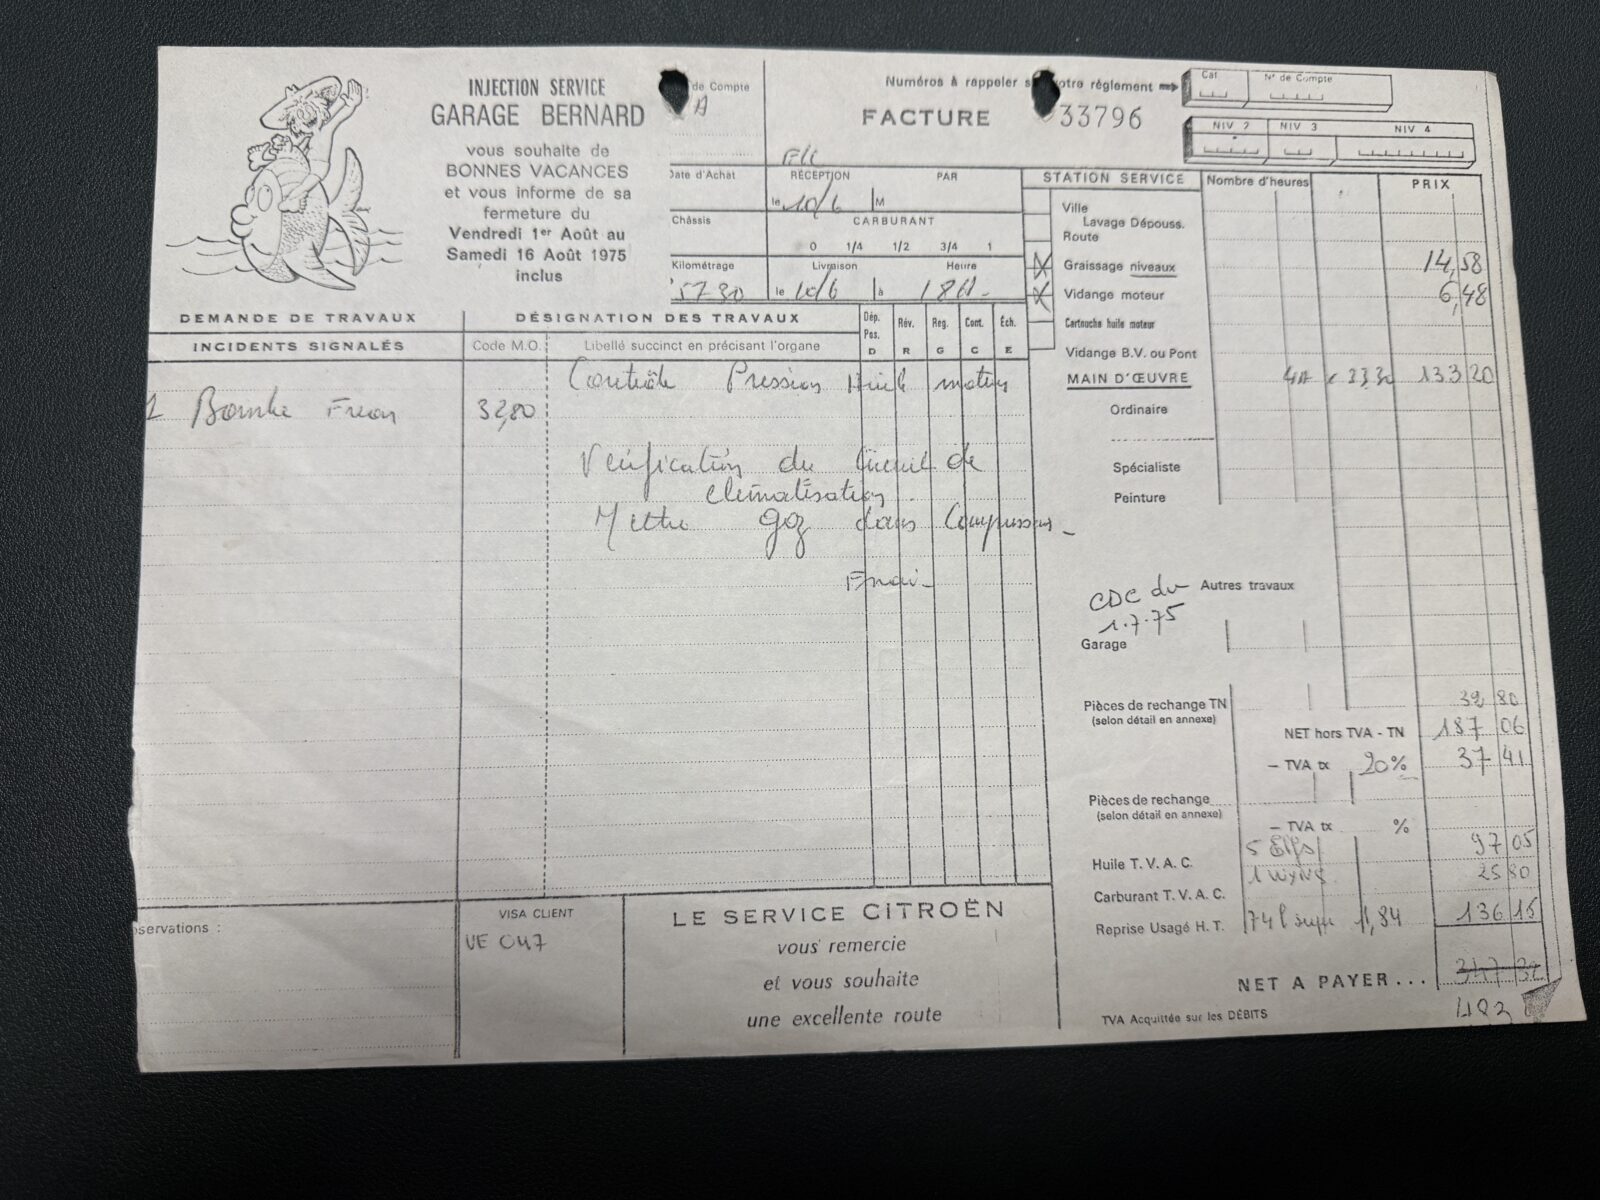 INJECTION SERVICE
GARAGE BERNARD
vous souhaite de
BONNES VACANCES
et vous informe de sa
fermeture du
Vendredi 1er Août au
Samedi 16 Août 1975
inclus
de Compte
A
Numéros à rappeler votre règlement
Cat
N° de Compte
FACTURE
33796
NIV 2 NIV 3 NIV 4
Date d'Achat
RÉCEPTION PAR
le 10/6 M
Châssis
CARBURANT
0 1/4 1/2 3/4 1
Kilométrage
Livraison Heure
5730 le 10/6 à 18H-
STATION SERVICE Nombre d'heures PRIX
Ville
Lavage Dépouss.
Route
X Graissage niveaux 14,58
X Vidange moteur 6,48
Cartouche huile moteur
Vidange B.V. ou Pont
MAIN D'ŒUVRE 4H x 33,30 133 20
Ordinaire
Spécialiste
Peinture
DEMANDE DE TRAVAUX
DÉSIGNATION DES TRAVAUX
Dép. Pos. Rév. Reg. Cont. Éch.
INCIDENTS SIGNALÉS
Code M.O.
Libellé succinct en précisant l'organe
D R G C E
Contrôle Pression Huile moteur
1 Bombe Freon 32,80
Verification du Circuit de
climatisation.
Mettre gaz dans Compresseur-
CDC du
1.7.75
Autres travaux
Garage
Pièces de rechange TN 32 80
(selon détail en annexe)
NET hors TVA - TN 187 06
- TVA tx 20% 37 41
Pièces de rechange
(selon détail en annexe)
- TVA tx %
Huile T.V.A.C. 97 05
25 80
Carburant T.V.A.C.
Reprise Usagé H.T. 74 l super 1,84 136 15
NET A PAYER... 347 32
TVA Acquittée sur les DÉBITS
servations :
VISA CLIENT
VE 047
LE SERVICE CITROËN
vous remercie
et vous souhaite
une excellente route